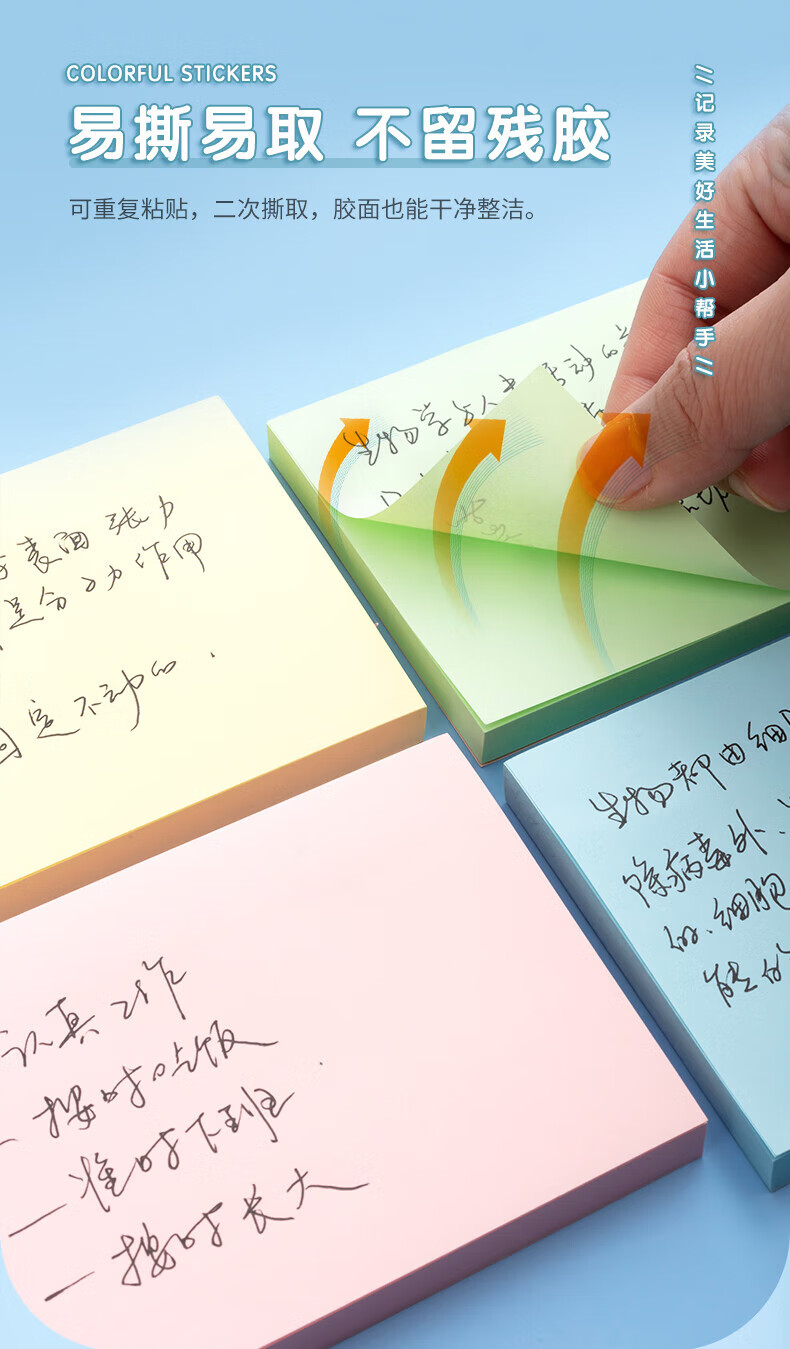 COLORFUL STICKERS
易撕易取 不留残胶
可重复粘贴，二次撕取，胶面也能干净整洁。
//记录美好生活小帮手//
生物学
表面张力
分子力作用
固定不动的.
生物都由细胞
除病毒外、
的.细胞
能的
认真工作
按时吃饭
准时下班
按时长大